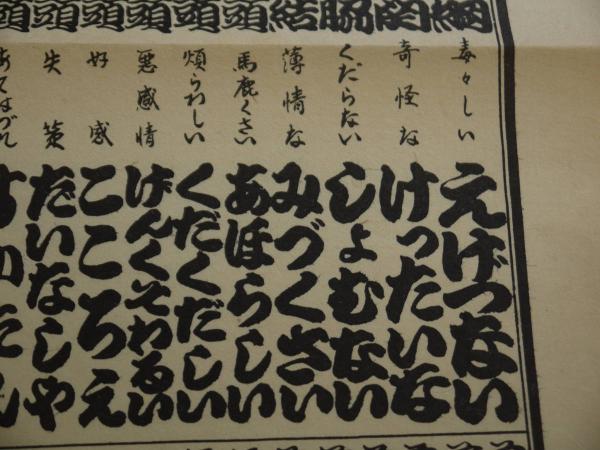 綱
毒々しい
えげつない
關
奇怪な
けったいな
脇
くだらない
しょむない
結
薄情な
みづくさい
頭
馬鹿くさい
あほらしい
頭
煩らわしい
くだくだしい
頭
悪感情
げんくそわるい
頭
好感
こころえ
頭
失策
だいなしや
頭